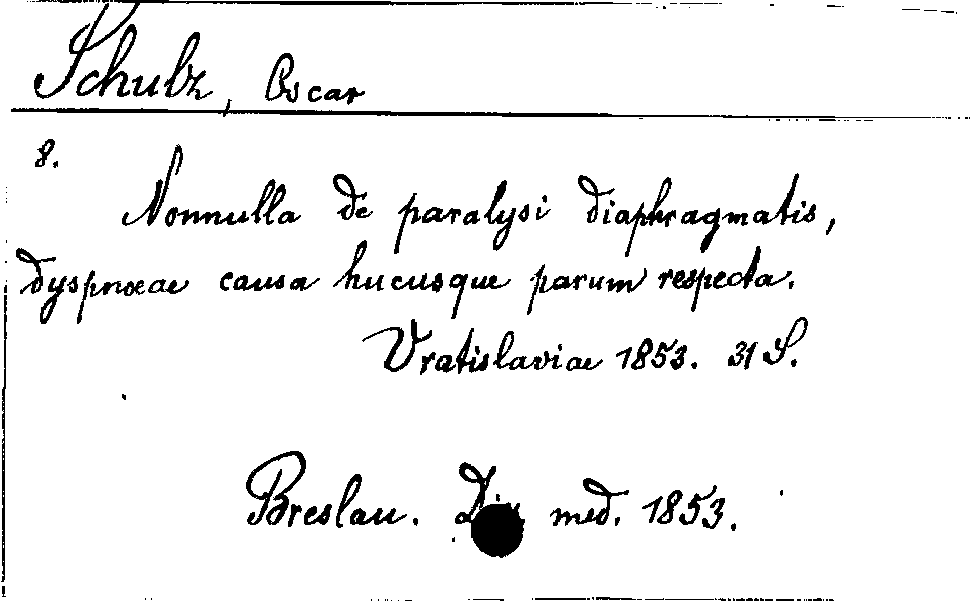 Schulz, Oscar
8.
Nonnulla de paralysi diaphragmatis,
dyspnoeae causa hucusque parum respecta.
Vratislaviae 1853. 31 S.
Breslau. med. 1853.